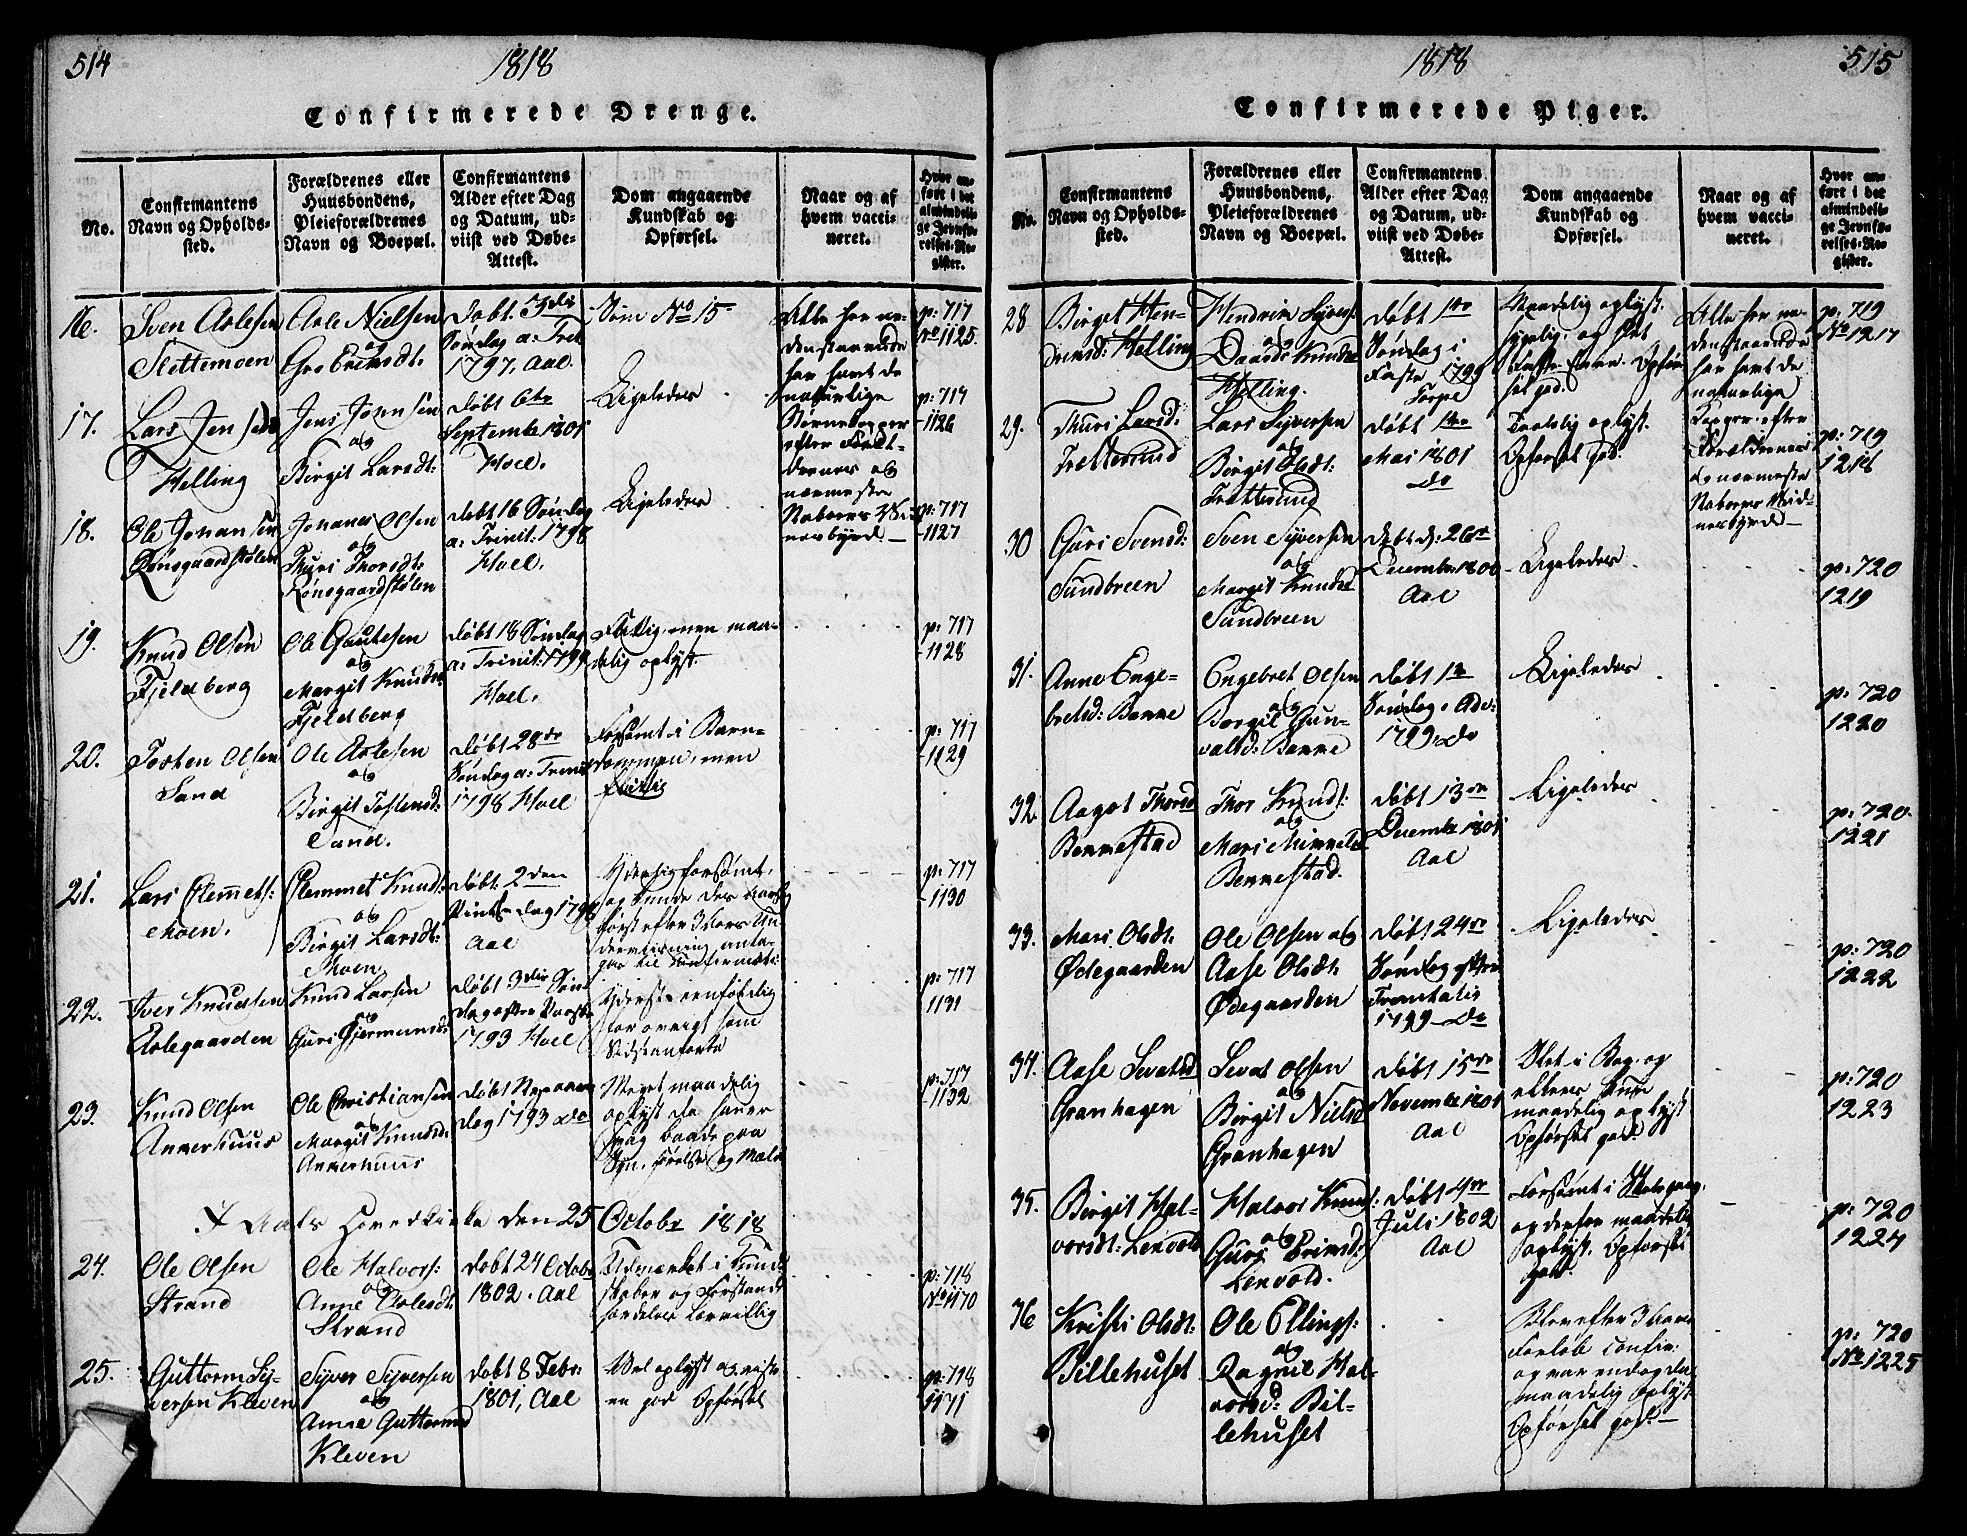 514
1818
Confirmerede Drenge.
No.
Confirmantens
Navn og Opholds-
sted.
Forældrenes eller
Huusbondens,
Pleieforældrenes
Navn og Boepæl.
Confirmantens
Alder efter Dag
og Datum, ud-
viist ved Døbe-
Attest.
Dom angaaende
Kundskab og
Opførsel.
Naar og af
hvem vacci-
neret.
Hvor an-
ført i det
almindeli-
ge Jevnfø-
relses-Re-
gister.
16.
Sven Aslesen
Slettemoen
Asle Nielsen
og
Gro Eriksdt:
Døbt 3die
Søndag a: Trit
1797, Aal.
Som No 15
Alle her ne-
denstaaende
har havt de
naturlige
Børnekopper
efter Foræl-
drenes og
nærmeste
Naboers Vid-
nesbyrd —
p: 717
No 1125
17.
Lars Jensen
Helling
Jens Jonsen
og
Birgit Larsdt:
Døbt 6te
September 1801
Hoel.
Ligeledes
p: 717
1126
18.
Ole Johansen
Rønsgaardstølen
Johanes Olsen
og
Thuri Thorsdt:
Rønsgaardstølen
Døbt 16 Søndag
a: Trinit: 1798
Hoel.
Ligeledes
p: 717
1127
19.
Knud Olsen
Fjeldberg
Ole Gautesen
og
Margit Knudsd:
Fjeldberg
Døbt 18 Søndag
a: Trinit: 1799
Hoel.
Flittig, men maa-
delig oplyst.
p: 717
1128
20.
Tosten Olsen
Sand
Ole Aslesen
og
Birgit Tostensd:
Sand.
Døbt 28de
Søndag a: Trinit
1798 Hoel
Forsømt i Barn-
dommen, men
flittig
p: 717
1129
21.
Lars Clemets:
Moen.
Clemmet Knuds:
og
Birgit Larsdt:
Moen
Døbt 2den
Pintsedag 1798
Aal
Yderlig forsømt,
og kunde der
først efter 3 Aars Un-
dervisning anta-
ges til Confirmati:
p: 717
1130
22.
Iver Knudsen
Aslegaarden
Knud Larsen
og
Guri Gjermundsd:
Døbt 3die Søn-
dag efter Paaske
1793 Hoel
Yderst eenfoldig
for øvrigt som
Sidstanførte
p: 717
1131
23.
Knud Olsen
Ankerhuus
Ole Christiansen
og
Margit Knudsd:
Ankerhuus
Døbt Nyaars
dag 1793 do
Meget maadelig
oplyst da han er
svag baade paa
Syn, Hørelse og Mæle
p: 717
1132
I Aals Hovedkirke den 25 Octobr 1818
24.
Ole Olsen
Strand
Ole Halvors:
og
Anne Aslesdt:
Strand
Døbt 24 Octobr
1802. Aal
Udmærket i Kund-
skaber og Forstand
særdeles lærvillig
p: 718
No 1170
25.
Guttorm Sy-
versen Kleven
Syver Syversen
og
Anne Guttormsd
Kleven
Døbt 8 Febr.
1801, Aal
Vel oplyst og viste
en god Opførsel
p: 718
1171
1818
515
Confirmerede Piger.
No.
Confirmantens
Navn og Opholds-
sted.
Forældrenes eller
Huusbondens,
Pleieforældrenes
Navn og Boepæl.
Confirmantens
Alder efter Dag
og Datum, ud-
viist ved Døbe-
Attest.
Dom angaaende
Kundskab og
Opførsel.
Naar og af
hvem vacci-
neret.
Hvor an-
ført i det
almindeli-
ge Jevnfø-
relses-Re-
gister.
28
Birgit Hen-
driksd: Helling
Hendrik Syvers:
og
Daarde Knudsd
Helling.
Døbt 1ste
Søndag i
Faste 1799
Torpe
Maadelig oplyst,
sygelig, og slet
Opfør-
sel god.
Alle her ne-
denstaaende
har havt de
naturlige
Kopper efter
Forældrenes
og nærmeste
Naboers Vid-
nesbyrd —
p: 719
No 1217
29.
Thuri Larsd:
Trettesund
Lars Syversen
og
Birgit Olsdt:
Trettesund
Døbt 1ste
Mai 1801
do
Taalelig oplyst.
Opførsel god.
p: 719
1218
30
Guri Svensd:
Sundbreen
Sven Syversen
og
Margit Knudsd
Sundbreen
Døbt d: 26de
December 1800
Aal
Ligeledes
p: 720
1219
31.
Anne Enge-
bretsd: Benne
Engebret Olsen
og
Borgil Gun-
valsd: Benne
Døbt 1ste
Søndag i Adv:
1799 do
Ligeledes
p: 720
1220
32.
Aagot Thorsd
Bennestad
Thor Knuds:
og
Mari
Bennestad.
Døbt 13de
December 1801
Aal
Ligeledes
p: 720.
1221
33.
Mari Olsdt:
Ødegaarden
Ole Olsen og
Aase Olsdt:
Ødegaarden
Døbt 24de
Søndag efter
Trinitatis
1799 do
Ligeledes
p: 720
1222
34.
Aase Sevatsd
Granhagen
Sevat Olsen
og
Birgit Nielsd
Granhagen
Døbt 15de
November 1801
Aal
Slet i Bog, og
ellers kun
maadelig oplyst
Opførsel god.
p: 720
1223
35.
Birgit Hal-
vorsdt: Lenvold
Halvor Knuds:
og
Guri Eriksd:
Lenvold.
Døbt 4de
Juli 1802
Aal
Forsømt i Skolegang,
og derfor maadelig
oplyst. Opførsel
god.
p: 720
1224
36
Kristi Olsdt:
Billehuset
Ole Ellings:
og
Ragnil Hal-
vorsd: Bil-
lehuset
Blev efter 3 Aars
Forløb confir:
og var endog da
maadelig oplyst
Opførsel god. —
p: 720
No 1225